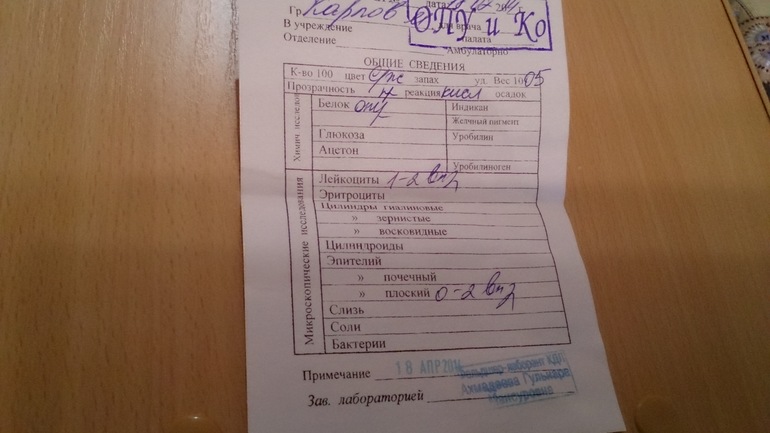 Гр. Карпов
дата
201 г.
В учреждение
для врача
Отделение
палата
Амбулаторно
ОПУ и Ко
ОБЩИЕ СВЕДЕНИЯ
К-во 100 цвет с/ж запах уд. Вес 1005
Прозрачность реакция кисл осадок
Химич. исследов
Белок отр
Индикан
Желчный пигмент
Глюкоза
Уробилин
Ацетон
Уробилиноген
Микроскопические исследования
Лейкоциты 1-2 в п/з
Эритроциты
Цилиндры гиалиновые
» зернистые
» восковидные
Цилиндроиды
Эпителий
» почечный
» плоский 0-2 в п/з
Слизь
Соли
Бактерии
Примечание
18 АПР 201
Фельдшер-лаборант КДЛ
Зав. лабораторией
Ахмадеева Гульнара
Мансуровна